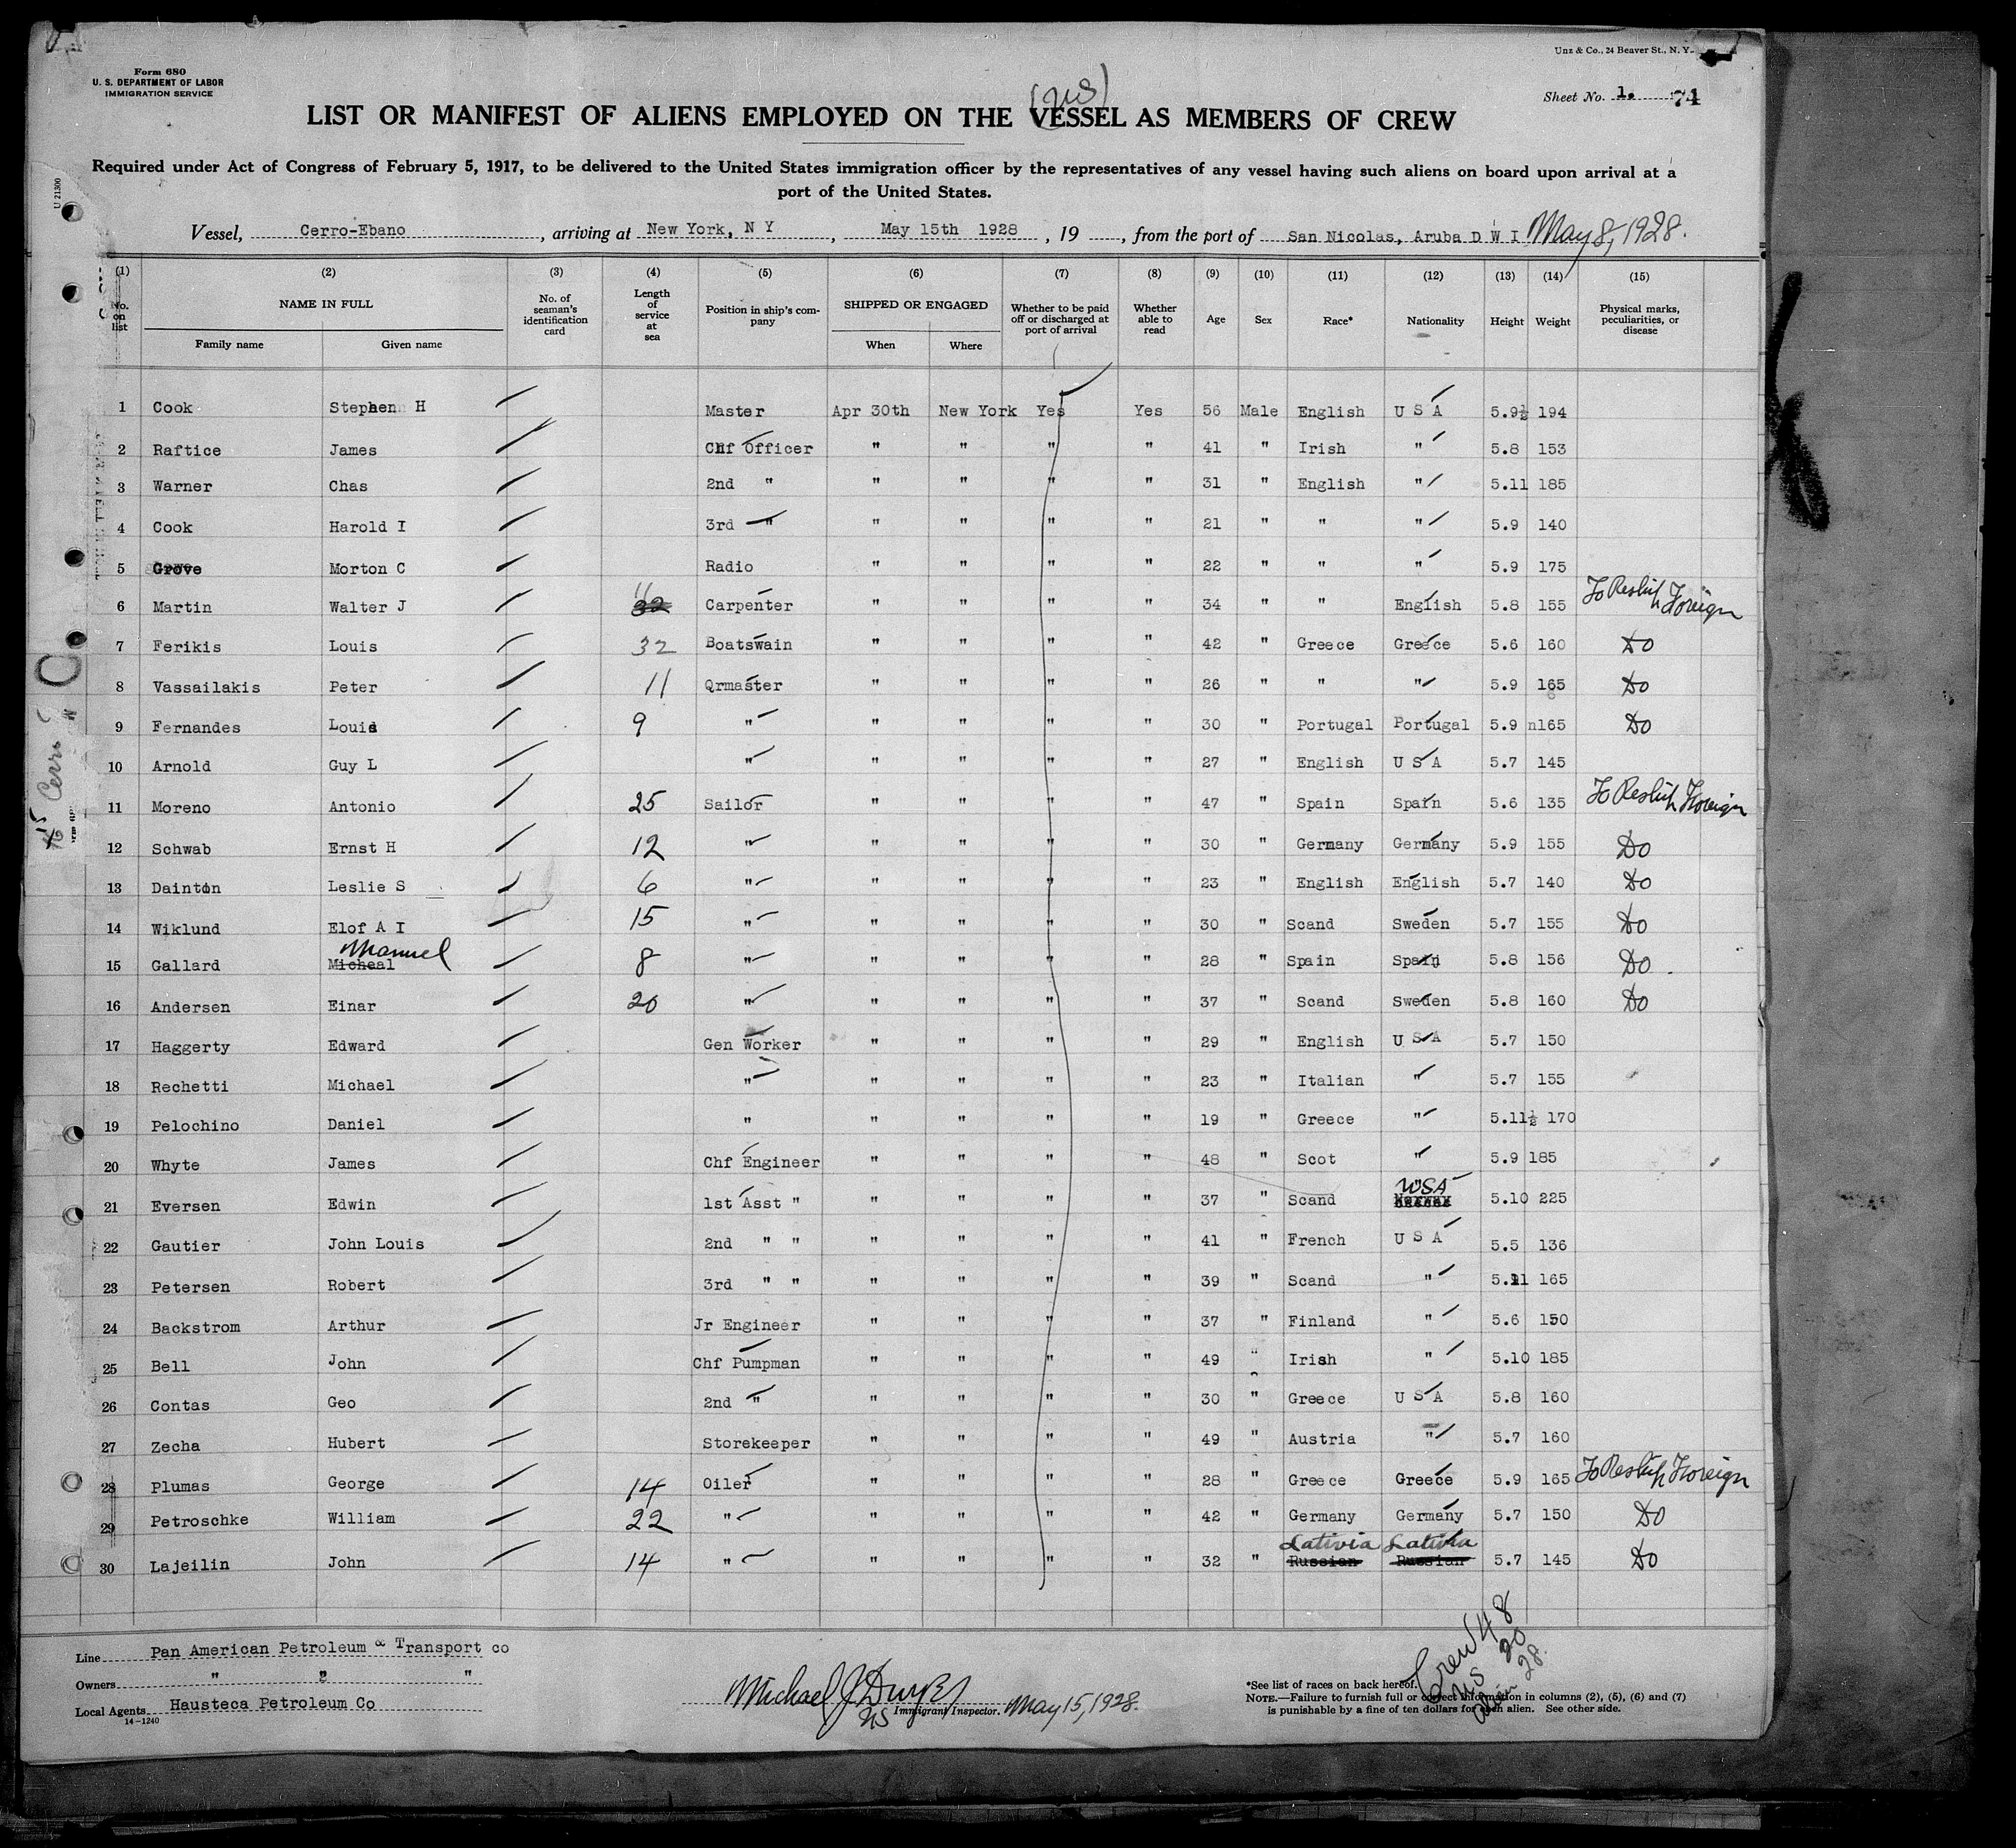 Unz & Co., 24 Beaver St., N. Y.
Form 680
U. S. DEPARTMENT OF LABOR
IMMIGRATION SERVICE
Sheet No. 1. 74
(US)
LIST OR MANIFEST OF ALIENS EMPLOYED ON THE VESSEL AS MEMBERS OF CREW
Required under Act of Congress of February 5, 1917, to be delivered to the United States immigration officer by the representatives of any vessel having such aliens on board upon arrival at a
port of the United States.
U 21300
Vessel, Cerro-Ebano, arriving at New York, N Y, May 15th 1928, 19, from the port of San Nicolas, Aruba D W I May 8, 1928.
(1) (2) (3) (4) (5) (6) (7) (8) (9) (10) (11) (12) (13) (14) (15)
No. on list NAME IN FULL Family name Given name No. of seaman's identification card Length of service at sea Position in ship's company SHIPPED OR ENGAGED When Where Whether to be paid off or discharged at port of arrival Whether able to read Age Sex Race* Nationality Height Weight Physical marks, peculiarities, or disease
1 Cook Stephen H Master Apr 30th New York Yes Yes 56 Male English U S A 5.9½ 194
2 Raftice James Chf Officer " " " " 41 " Irish " 5.8 153
3 Warner Chas 2nd " " " " " 31 " English " 5.11 185
4 Cook Harold I 3rd " " " " " 21 " " " 5.9 140
5 Grove Morton C Radio " " " " 22 " " " 5.9 175
6 Martin Walter J 32 11 Carpenter " " " " 34 " " English 5.8 155 To Reship Foreign
7 Ferikis Louis 32 Boatswain " " " " 42 " Greece Greece 5.6 160 Do
8 Vassailakis Peter 11 Qrmaster " " " " 26 " " " 5.9 165 Do
9 Fernandes Louis 9 " " " " " 30 " Portugal Portugal 5.9 n165 Do
10 Arnold Guy L " " " " " 27 " English U S A 5.7 145
11 Moreno Antonio 25 Sailor " " " " 47 " Spain Spain 5.6 135 To Reship Foreign
12 Schwab Ernst H 12 " " " " " 30 " Germany Germany 5.9 155 Do
13 Dainton Leslie S 6 " " " " " 23 " English English 5.7 140 Do
14 Wiklund Elof A I 15 " " " " " 30 " Scand Sweden 5.7 155 Do
15 Gallard Micheal Manuel 8 " " " " " 28 " Spain Spain 5.8 156 Do
16 Andersen Einar 20 " " " " " 37 " Scand Sweden 5.8 160 Do
17 Haggerty Edward Gen Worker " " " " 29 " English U S A 5.7 150
18 Rechetti Michael " " " " " 23 " Italian " 5.7 155
19 Pelochino Daniel " " " " " 19 " Greece " 5.11½ 170
20 Whyte James Chf Engineer " " " " 48 " Scot " 5.9 185
21 Eversen Edwin 1st Asst " " " " " 37 " Scand USA 5.10 225
22 Gautier John Louis 2nd " " " " " " 41 " French U S A 5.5 136
23 Petersen Robert 3rd " " " " " " 39 " Scand " 5.11 165
24 Backstrom Arthur Jr Engineer " " " " 37 " Finland " 5.6 150
25 Bell John Chf Pumpman " " " " 49 " Irish " 5.10 185
26 Contas Geo 2nd " " " " " 30 " Greece U S A 5.8 160
27 Zecha Hubert Storekeeper " " " " 49 " Austria " 5.7 160
28 Plumas George 14 Oiler " " " " 28 " Greece Greece 5.9 165 To Reship Foreign
29 Petroschke William 22 " " " " " 42 " Germany Germany 5.7 150 Do
30 Lajeilin John 14 " " " " " 32 " Russian Lativia Russian Lativia 5.7 145 Do
Crew 48
US 20
Alien 28.
Line Pan American Petroleum & Transport co
Owners " " "
Local Agents Hausteca Petroleum Co
14-1240
Michael J Dwyer
US Immigrant Inspector. May 15, 1928.
*See list of races on back hereof.
NOTE.—Failure to furnish full or correct information in columns (2), (5), (6) and (7)
is punishable by a fine of ten dollars for each alien. See other side.